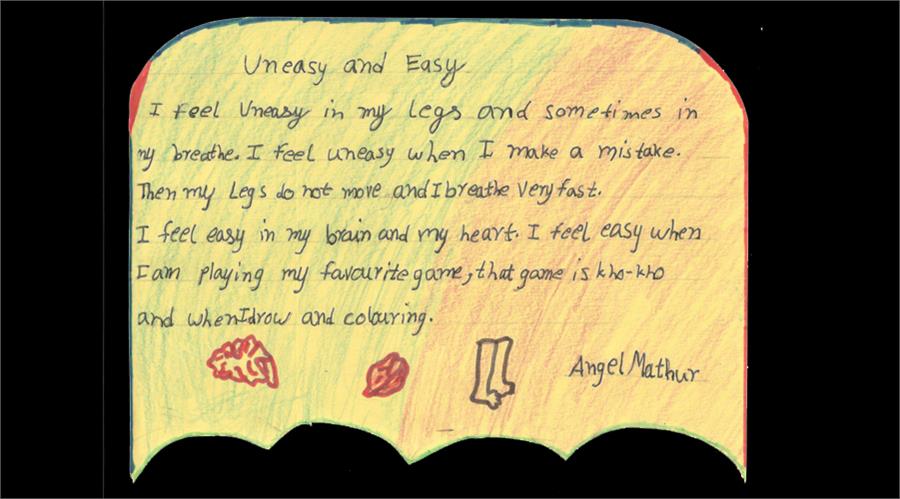 Uneasy and Easy
I feel Uneasy in my legs and sometimes in
my breathe. I feel uneasy when I make a mistake.
Then my Legs do not move and I breathe Very fast.
I feel easy in my brain and my heart. I feel easy when
I am playing my favourite game, that game is kho-kho
and when I drow and colouring.
Angel Mathur